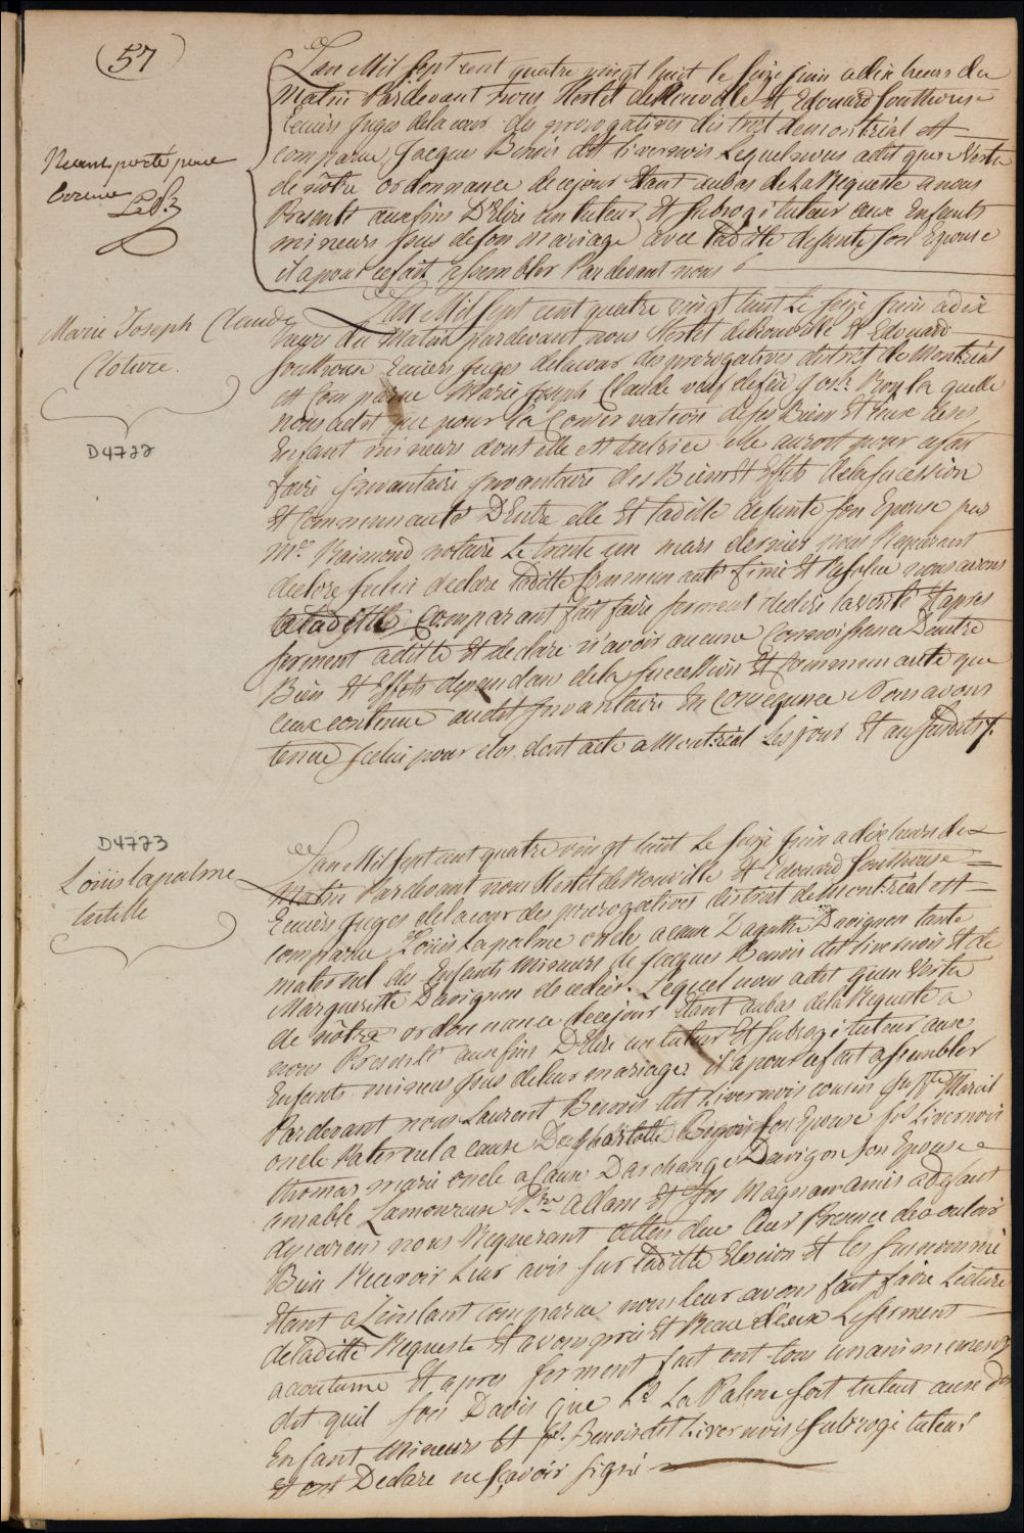 57
L'an Mil sept cent quatre vingt huit le seize juin a dix heures du
Matin Pardevant nous Hertel de Rouville Et Edouard Southouse
Ecuiers Juges de la cour des prerogatives district de montréal est
comparu Jacque Benois dit Livernois Lequel nous a dit qu'en Vertu
de nôtre ordonnance de ce jour Etant au bas de La Requeste a nous
Presenté aux fins D'Elire un tuteur Et subrogé tuteur aux Enfants
mineurs issus de son mariage avec laditte defunte son Epouse
il a pour cefait assembler Pardevant nous
Neant porté pour
Erreur
Marie Joseph Claude
Cloture.
D4722
L'an Mil sept cent quatre vingt huit Le seize juin a dix
heures du Matin pardevant nous Hertel de Rouville Et Edouard
Southouse Ecuiers Juges de la cour des prerogatives district de Montréal
est Comparue Marie Joseph Claude veuf de feu Josh. Roy la quelle
nous a dit que pour la Conservation de ses Bien Et ceux de ses
Enfant mineurs dont elle est tutrice elle auroit pour cefait
faire inventaire inventaire des Biens Et Effets de la sucession
Et Communauté D'Entre elle Et laditte defunte son Epouse par
Me. Raimond notaire Le trente un mars dernier nous Requerant
declore Icelui declare laditte Communauté finie Et resolue nous avons
a laditte Comparant fait faire serment de dire la verité Et apres
serment a ditte Et declare n'avoir aucune Connoissance D'autre
Bien Et Effets dependans de la succession Et communauté que
ceux contenue audit Inventaire En Consequence Nous avons
tenue Icelui pour clos dont acte a Montréal Les jour Et an susdit
D4723
Louis lapalme
tutelle
L'an Mil sept cent quatre vingt huit Le seize juin a dix heures du
Matin Pardevant nous Hertel de Rouville Et Edouard Southouse
Ecuiers Juges de la cour des prerogatives district de Montréal est
comparu Louis Lapalme oncle a cause D'agathe Davignon tante
maternel des Enfants Mineurs de Jacques Benois dit livernois Et de
Marguerite Davignon decedée. Lequel nous a dit qu'en Vertu
de nôtre ordonnance de ce jour Etant au bas de la Requeste a
nous Presenté aux fins D'Elire un tuteur Et Subrogé tuteur aux
Enfants mineurs issus de leur mariage il a pour cefait assembler
Pardevant nous Laurent Benois dit Livernois cousin Marcil
oncle Paternel a cause De Charlotte Benois son Epouse Livernois
thomas marié oncle a cause D'archange Davignon son Epouse
amable Lamoureux adam Et Jos Magnan amis adefaut
de parens nous Requerant attendue leur Presence de vouloir
Bien Recevoir Leur avis sur laditte Eleccion Et les susnommé
Etant a L'instant comparue nous leur avons fait faire Lecture
de laditte Requeste Et avons pris Et Recu d'eux Le serment
accoutumé Et apres serment fait ont tous unanimement
dit qu'il sons D'avis que Ls La Palme soit tuteur aux dts
Enfant Mineurs Et Benois dit Livernois subrogé tuteur
Et ont Declare ne sçavoir signé